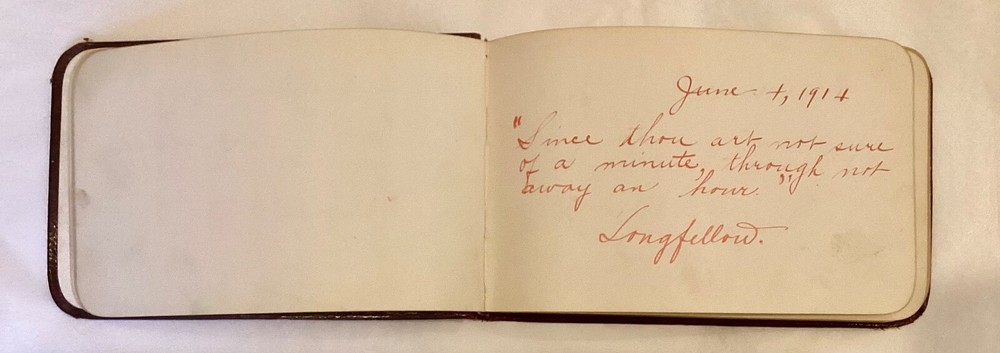 June 4, 1914
"Since thou art not sure
of a minute, through not
away an hour."
Longfellow.